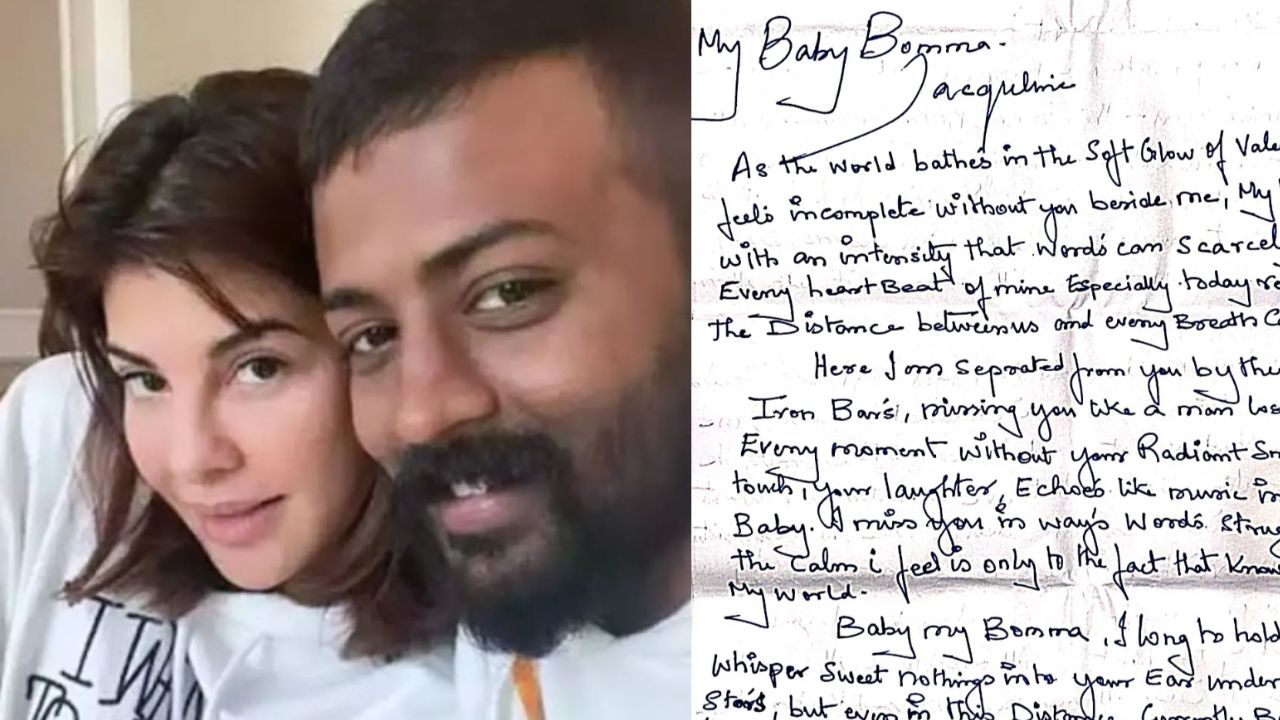 My Baby Bomma.
Jacquline
As the world bathes in the Soft Glow of Vale
feels incomplete without you beside me, My
with an intensity that words can Scarcel
Every heart Beat of mine Especially today re
the Distance between us and every Breath
Here I am seprated from you by the
Iron Bars, missing you like a man los
Every moment without your Radiant Sm
touch, your laughter, Echoes like music in
Baby. I miss you in way's words. Strug
the calm i feel is only to the fact that Know
My world.
Baby my Bomma, I long to hold
whisper sweet nothings into your Ear under
Stars, but even in this Distance,
I